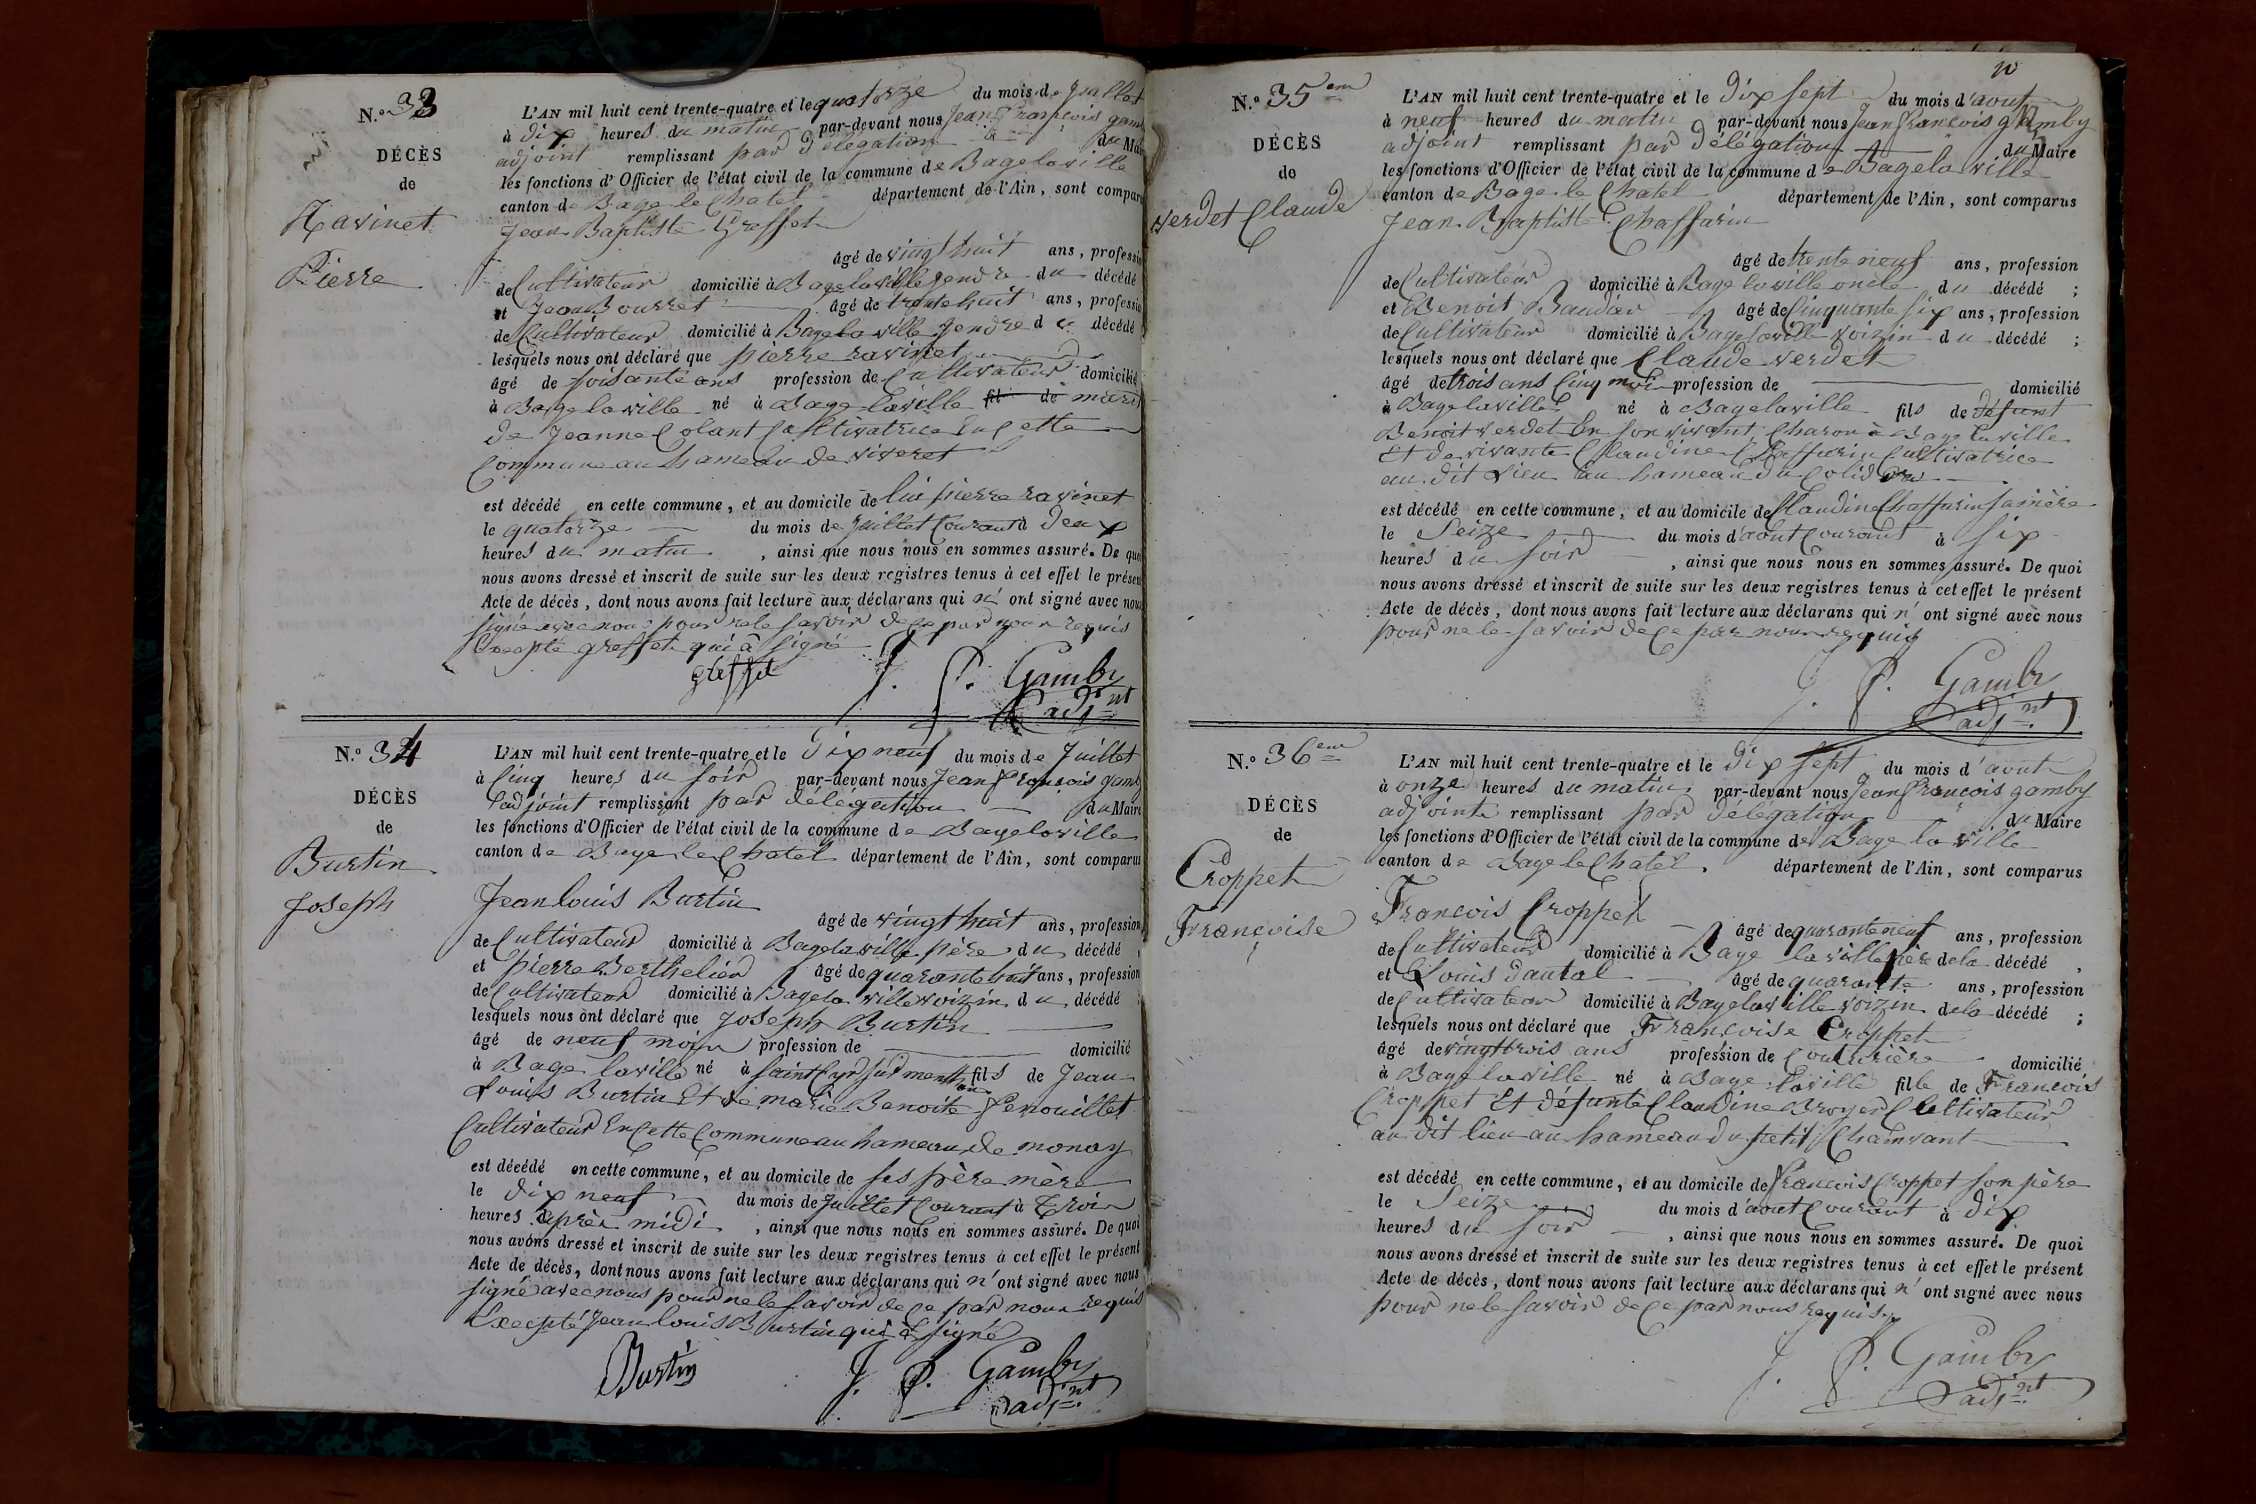 N.º 33
DÉCÈS
de
Ravinet
Pierre
L'AN mil huit cent trente-quatre et le quatorze du mois de juillet
à dix heures du matin par-devant nous Jean François gamb
adjoint remplissant par délégation du Mai
les fonctions d'Officier de l'état civil de la commune de Bagelaville
canton de Bage le Chatel département de l'Ain, sont comparu
Jean Baptiste Greffet
âgé de vingt huit ans, professio
de Cultivateur domicilié à Bagelaville gendre du décédé
et Jean Bourret âgé de trente huit ans, professio
de Cultivateur domicilié à Bage la ville gendre du décédé
lesquels nous ont déclaré que pierre ravinet
âgé de soisante ans profession de Cultivateur domicilié
à Bage la ville né à Bage laville fil de mari
de Jeanne Colant Cultivatrice en cette
Commune au hameau de viveret
est décédé en cette commune, et au domicile de lui pierre ravinet
le quatorze du mois de juillet Courant à deux
heures du matin, ainsi que nous nous en sommes assuré. De quo
nous avons dressé et inscrit de suite sur les deux registres tenus à cet effet le présen
Acte de décès, dont nous avons fait lecture aux déclarans qui n' ont signé avec nou
signé avec nous pour ne le savoir de ce par nous requis
Excepté greffet qui à signé
greffet J. F. Gamby
adj.nt
N.º 34
DÉCÈS
de
Burtin
Joseph
L'AN mil huit cent trente-quatre et le dix neuf du mois de Juillet
à Cinq heures du soir par-devant nous Jean François gamb
adjoint remplissant par délégation du Maire
les fonctions d'Officier de l'état civil de la commune de Bagelaville
canton de Bage le Chatel département de l'Ain, sont comparus
Jean louis Burtin
âgé de vingt huit ans, profession
de Cultivateur domicilié à Bagelaville père du décédé
et pierre Berthelier âgé de quarante huit ans, profession
de Cultivateur domicilié à Bagela ville voizin du décédé ;
lesquels nous ont déclaré que Joseph Burtin
âgé de neuf mois profession de domicilié
à Bage laville né à saint Cyr sur menthon fils de Jean
Louis Burtin Et de marie Benoite Penouillet
Cultivateur En Cette Commune au hameau de monay
est décédé en cette commune, et au domicile de ses père mère
le dix neuf du mois de Juillet Courant à trois
heures après midi, ainsi que nous nous en sommes assuré. De quoi
nous avons dressé et inscrit de suite sur les deux registres tenus à cet effet le présent
Acte de décès, dont nous avons fait lecture aux déclarans qui n' ont signé avec nous
signé avec nous pour ne le savoir de ce par nous requis
Excepté Jean louis Burtin qui à signé
Burtin J. F. Gamby
adj.nt
N.º 35 eme
DÉCÈS
de
verdet Claude
L'AN mil huit cent trente-quatre et le dix sept du mois d'aout
à neuf heures du matin par-devant nous Jean François gamby
adjoint remplissant par délégation du Maire
les fonctions d'Officier de l'état civil de la commune de Bagela ville
canton de Bage le Chatel département de l'Ain, sont comparus
Jean Baptiste Chaffurin
âgé de trente neuf ans, profession
de Cultivateur domicilié à Bage laville oncle du décédé ;
et Benoit Baudar âgé de Cinquante six ans, profession
de Cultivateur domicilié à Bagelaville voizin du décédé ;
lesquels nous ont déclaré que Claude verdet
âgé de trois ans Cinq moi profession de domicilié
à Bagelaville né à Bagelaville fils de défunt
Benoit verdet En son vivant Charon à Bage laville
Et de vivante Claudine Chaffurin Cultivatrice
au dit Lieu au hameau du
est décédé en cette commune, et au domicile de Claudine Chaffurin sa mère
le Seize du mois d'aout Courant à six
heures du soir, ainsi que nous nous en sommes assuré. De quoi
nous avons dressé et inscrit de suite sur les deux registres tenus à cet effet le présent
Acte de décès, dont nous avons fait lecture aux déclarans qui n' ont signé avec nous
pour ne le savoir de ce par nous requis
J. F. Gamby
adj.nt
N.º 36 eme
DÉCÈS
de
Croppet
Françoise
L'AN mil huit cent trente-quatre et le dix sept du mois d'aout
à onze heures du matin par-devant nous Jean François gamby
adjoint remplissant par délégation du Maire
les fonctions d'Officier de l'état civil de la commune de Bage la ville
canton de Bage le Chatel département de l'Ain, sont comparus
François Croppet
âgé de quarante neuf ans, profession
de Cultivateur domicilié à Bage la ville père de la décédé ,
et Louis dautal âgé de quarante ans, profession
de Cultivateur domicilié à Bagelaville voizin de la décédé ;
lesquels nous ont déclaré que Françoise Croppet
âgé de vingt trois ans profession de Couturière domicilié
à Bage laville né à Bage laville fille de François
Croppet Et defunte Claudine Broyer Cultivateur
au dit lieu au hameau du petit Chamvant
est décédé en cette commune, et au domicile de François Croppet son père
le Seize du mois d'aout Courant à dix
heures du soir, ainsi que nous nous en sommes assuré. De quoi
nous avons dressé et inscrit de suite sur les deux registres tenus à cet effet le présent
Acte de décès, dont nous avons fait lecture aux déclarans qui n' ont signé avec nous
pour ne le savoir de ce par nous requis
J. F. Gamby
adj.nt